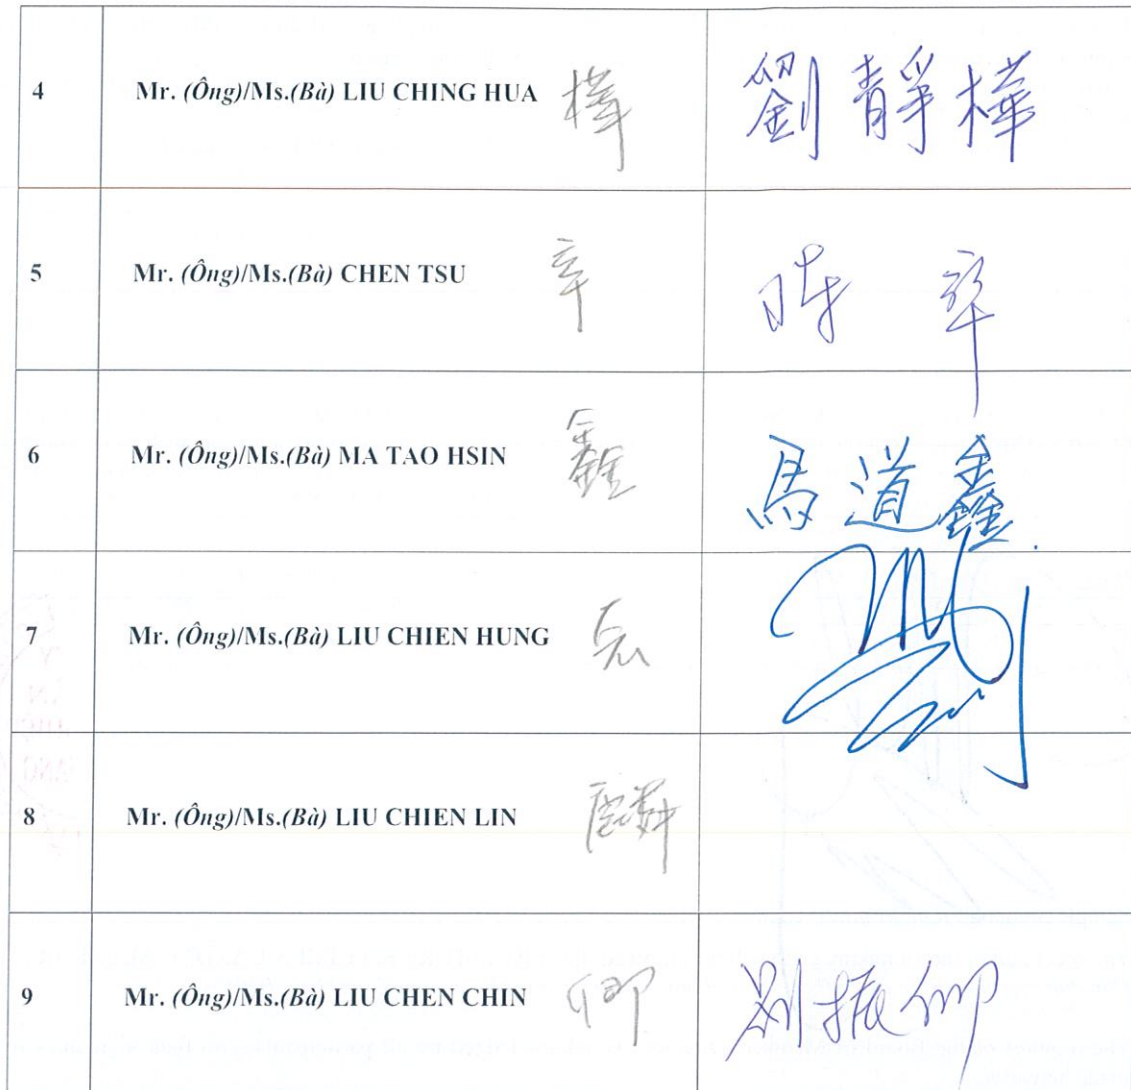 4 Mr. (Ông)/Ms.(Bà) LIU CHING HUA 樺 劉靜樺
5 Mr. (Ông)/Ms.(Bà) CHEN TSU 陳
6 Mr. (Ông)/Ms.(Bà) MA TAO HSIN 鑫 馬道鑫
7 Mr. (Ông)/Ms.(Bà) LIU CHIEN HUNG
8 Mr. (Ông)/Ms.(Bà) LIU CHIEN LIN 麟
9 Mr. (Ông)/Ms.(Bà) LIU CHEN CHIN 卿 劉振卿